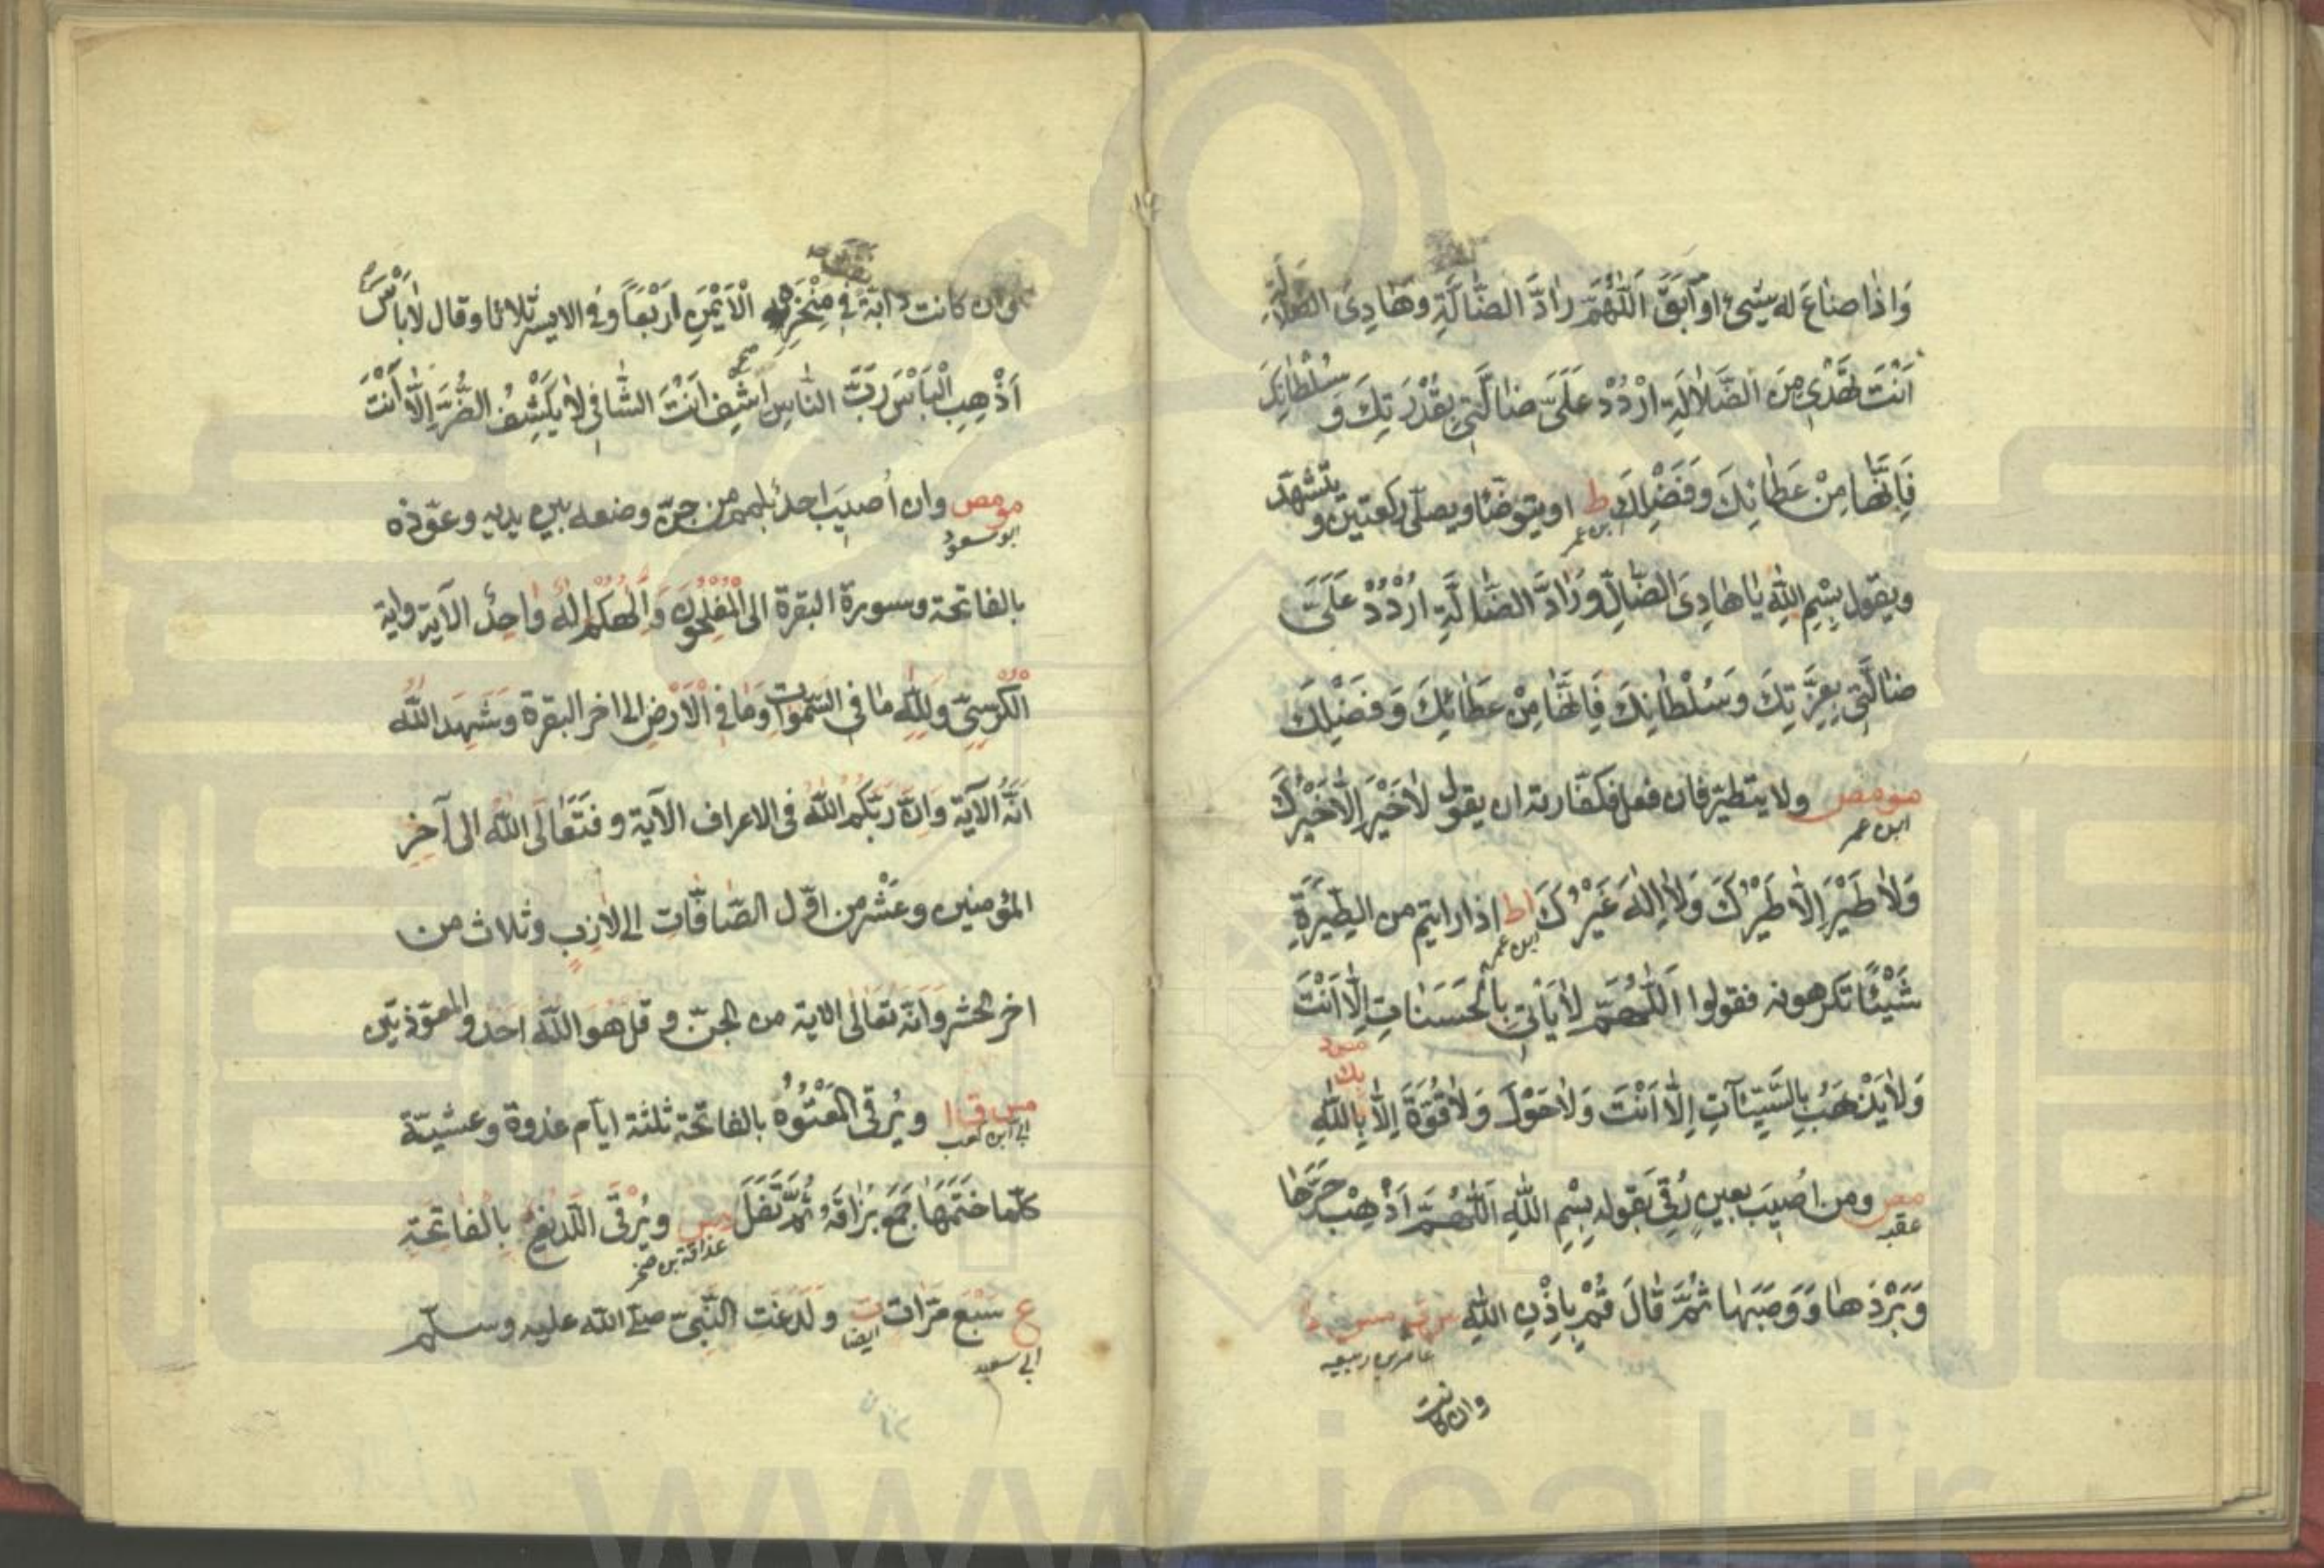 وَاِذٰا ضٰاعَ له شَيئ اَو اَبَقَ اَللّٰهُمَّ رٰادَّ الضّٰالَّةِ وَهٰادِىَ الضَّلٰالَةِ
اَنْتَ تَهْدٖى مِنَ الضَّلٰالَةِ اُرْدُدْ عَلَىَّ ضٰالَّتٖى بِقُدْرَتِكَ وَ سُلْطٰانِكَ
فَاِنَّهٰا مِنْ عَطٰائِكَ وَفَضْلِكَ ط او يتوضّأ ويصلّى ركعتين و يتشهّد
ابن عمر
ويقول بِسْمِ اللّٰهِ يٰا هٰادِىَ الضّٰالِّ وَرٰادَّ الضّٰالَّةِ اُرْدُدْ عَلَىَّ
ضٰالَّتٖى بِعِزَّتِكَ وَسُلْطٰانِكَ فَاِنَّهٰا مِنْ عَطٰائِكَ وَفَضْلِكَ
مومص ولا يتطيّر فان فعل فكفّارته ان يقول لٰاخَيْرَ اِلّٰا خَيْرُكَ
ابن عمر
وَلٰا طَيْرَ اِلّٰا طَيْرُكَ وَلٰا اِلٰهَ غَيْرُكَ اط اذا رايتم من الطِّيَرَةِ
ابن عمر
شَيْئًا تكرهونه فقولوا اَللّٰهُمَّ لٰا يَأْتٖى بِالْحَسَنٰاتِ اِلّٰا اَنْتَ
وَلٰا يَذْهَبُ بِالسَّيِّئٰاتِ اِلّٰا اَنْتَ وَلٰا حَوْلَ وَلٰا قُوَّةَ اِلّٰا بِاللّٰهِ
بك
مص ومن اُصيبَ بعينٍ رُقِىَ بقوله بِسْمِ اللّٰهِ اَللّٰهُمَّ اَذْهِبْ حَرَّهٰا
عقبه
وَبَرْدَهٰا وَوَصَبَهٰا ثُمَّ قٰالَ قُمْ بِاِذْنِ اللّٰهِ
عامر بن ربيعه
وان كانت
وان كانت دٰابّةً فِى مِنْخَرِهِ الْاَيْمَنِ اَرْبَعًا وَفِى الايسر ثلاثا وقال لٰابَأْسَ
اَذْهِبِ الْبَأْسَ رَبَّ النّٰاسِ اِشْفِ اَنْتَ الشّٰافٖى لٰا يَكْشِفُ الضُّرَّ اِلّٰا اَنْتَ
مومص وان اُصيبَ احدٌ بلمم من جنّ وضعه بين يديه وعوّذه
ابو سعود
بالفاتحة وسورة البقرة الى الْمُفْلِحُونَ وَاِلٰهُكُمْ اِلٰهٌ وٰاحِدٌ الآية واية
الْكُرْسِىِّ وَلِلّٰهِ مٰا فِى السَّمٰوٰاتِ وَمٰا فِى الْاَرْضِ الى اخر البقرة وَشَهِدَ اللّٰهُ
اَنَّهُ الآية وَاِنَّ رَبَّكُمُ اللّٰهُ فى الاعراف الآية وَ فَتَعٰالَى اللّٰهُ الى آخِرِ
المؤمنين وعَشْر من اوّل الصّٰافّٰات الى لازبٍ وثلاث من
اخر الحشر وَاَنَّهُ تَعٰالىٰ الآية من الجنّ و قل هو اللّٰه احد والمعوّذتين
مس ق ا ويُرقَى الْمَعْتُوهُ بالفاتحة ثلثة ايّام غدوة وعشيّة
ابى ابن كعب
كلّما خَتَمَهٰا جَمَعَ بُزٰاقَهُ ثُمَّ تَفَلَ دس ويُرْقَى اللَّديغُ بِالْفٰاتِحَةِ
ع سَبْعَ مَرّاتٍ ت ولَدَغَت النَّبِىَّ صلى اللّه عليه وسلّم
ابى سعيد ايضا